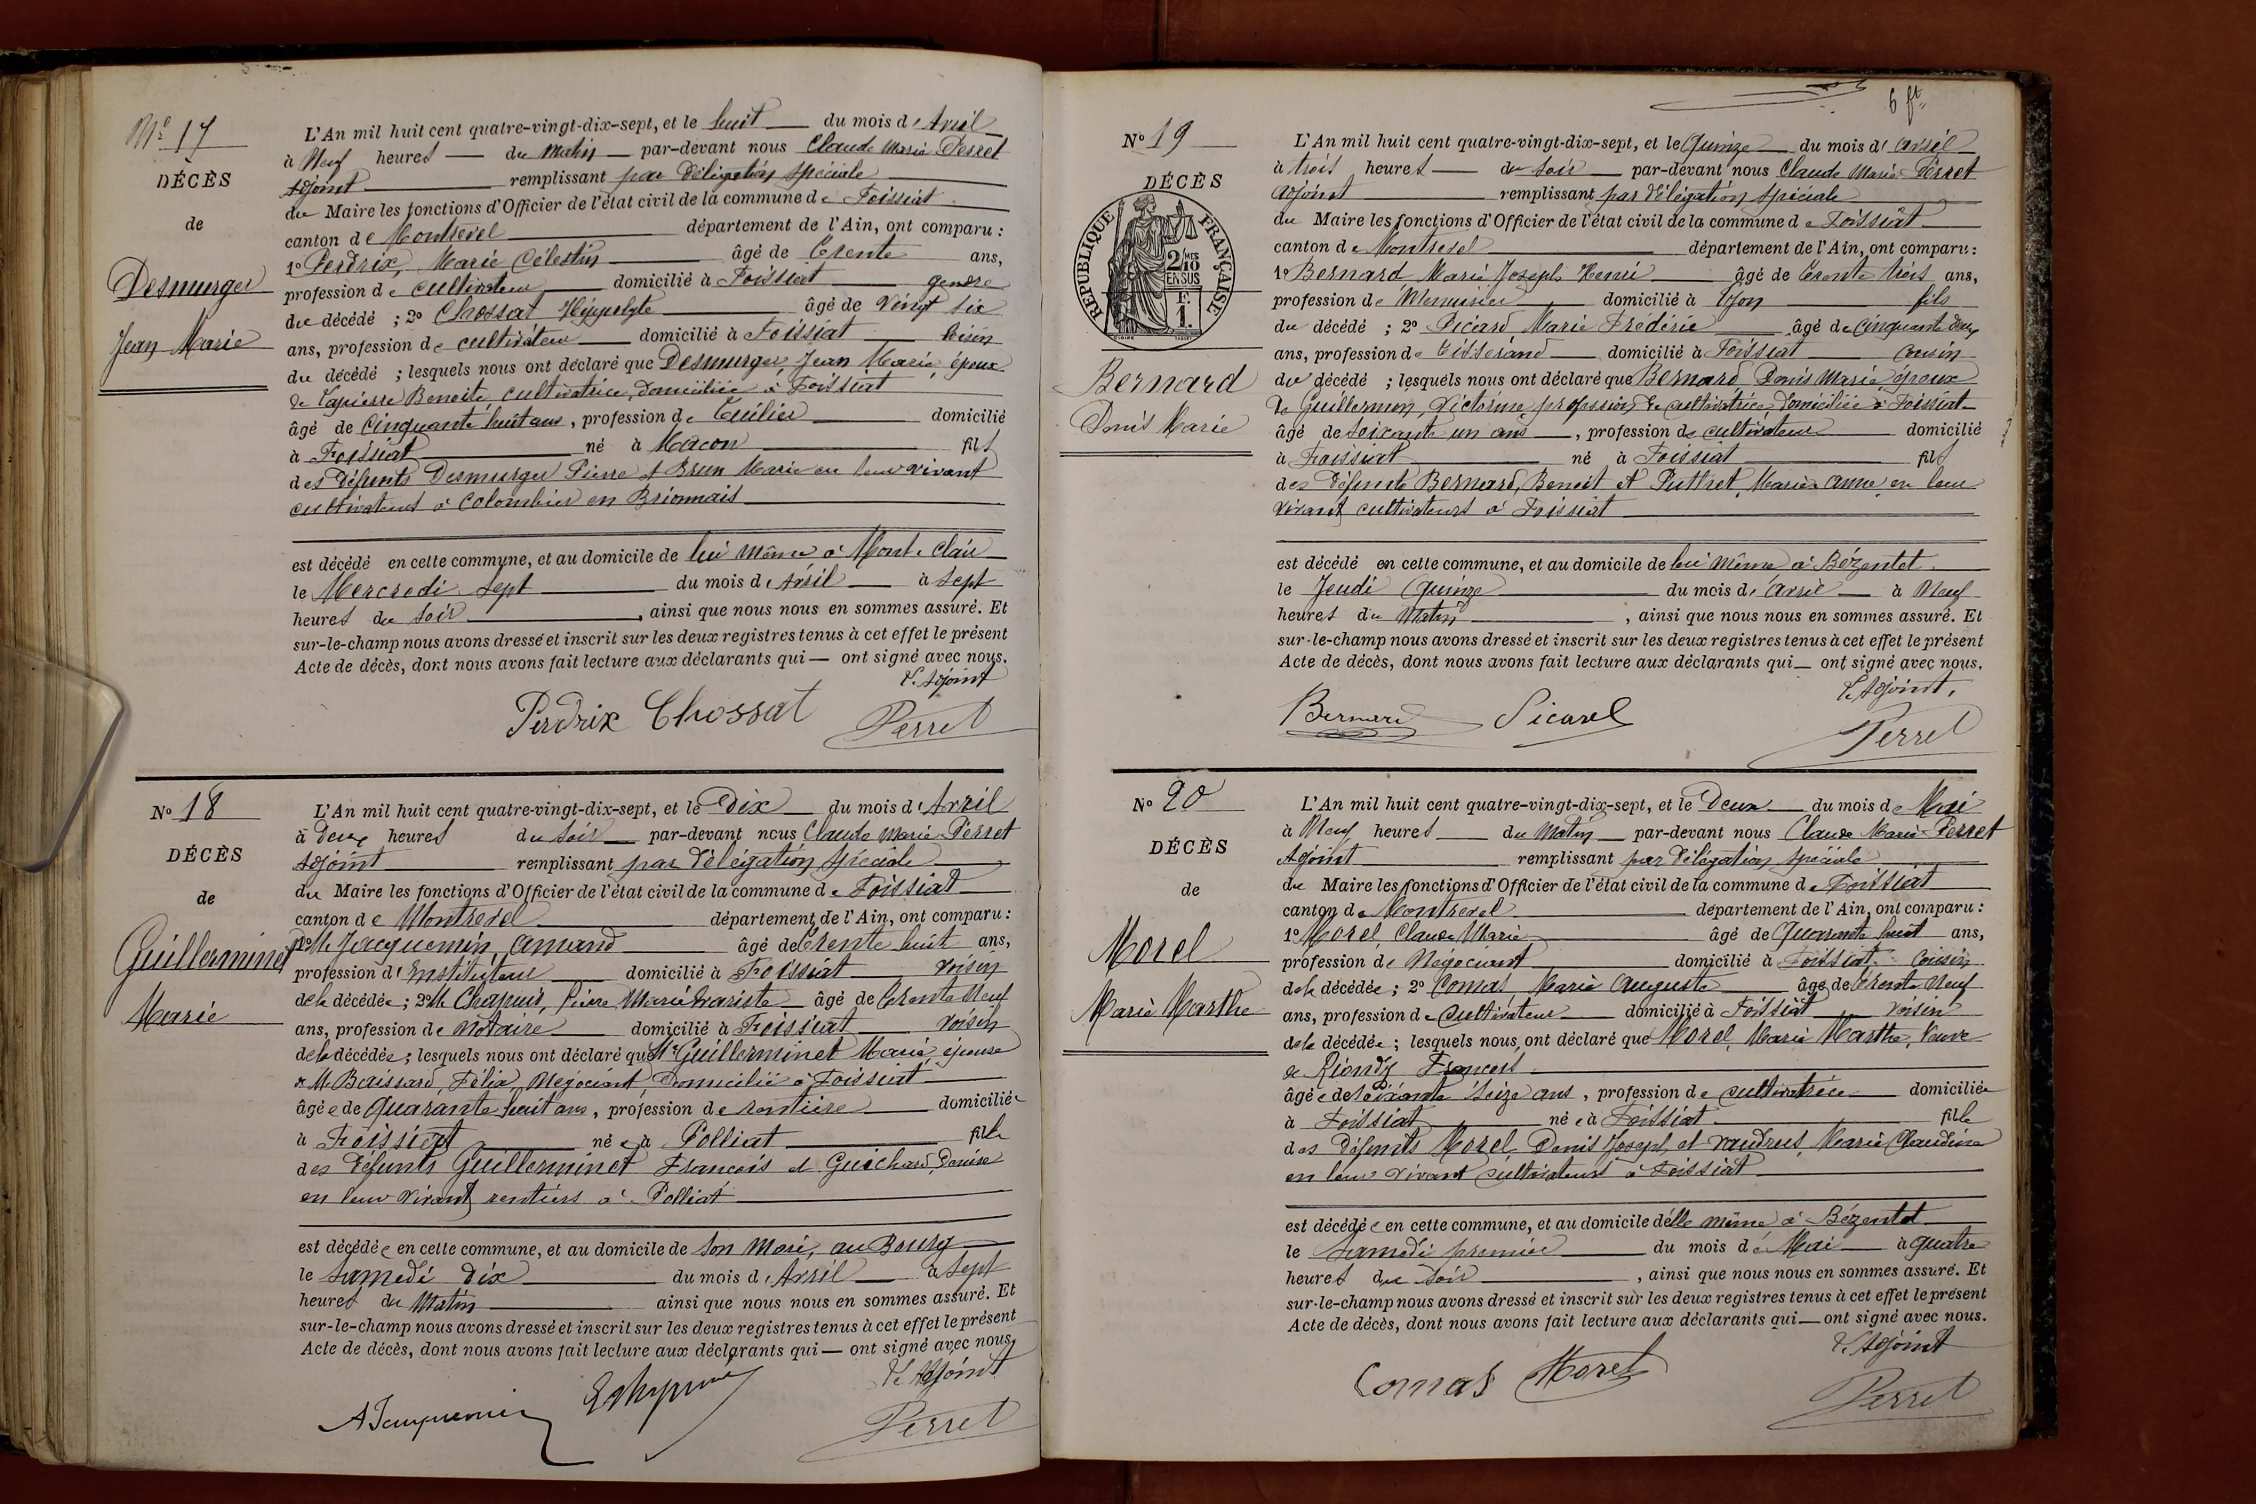 Nº 17
DÉCÈS
de
Desmurger
Jean Marie
L'An mil huit cent quatre-vingt-dix-sept, et le huit du mois d'Avril
à Neuf heures du matin par-devant nous Claude Marie Perret
Adjoint remplissant par délégation spéciale
du Maire les fonctions d'Officier de l'état civil de la commune de Foissiat
canton de Montrevel département de l'Ain, ont comparu :
1º Perdrix, Marie Célestin âgé de trente ans,
profession de cultivateur domicilié à Foissiat gendre
du décédé ; 2º Chossat Hippolyte âgé de vingt six
ans, profession de cultivateur domicilié à Foissiat voisin
du décédé ; lesquels nous ont déclaré que Desmurger, Jean Marie, époux
de Lapierre Benoite cultivatrice, domiciliée à Foissiat
âgé de cinquante huit ans, profession de Tuilier domicilié
à Foissiat né à Macon fils
des défunts Desmurger Pierre et Brun Marie en leur vivant
cultivateurs à Colombier en Brionnais
est décédé en cette commune, et au domicile de lui même à Mont-Clair
le Mercredi sept du mois d'Avril à sept
heures du soir, ainsi que nous nous en sommes assuré. Et
sur-le-champ nous avons dressé et inscrit sur les deux registres tenus à cet effet le présent
Acte de décès, dont nous avons fait lecture aux déclarants qui — ont signé avec nous.
L'Adjoint
Perdrix Chossat Perret
Nº 18
DÉCÈS
de
Guillerminet
Marie
L'An mil huit cent quatre-vingt-dix-sept, et le Dix du mois d'Avril
à deux heures du soir par-devant nous Claude Marie Perret
Adjoint remplissant par délégation spéciale
du Maire les fonctions d'Officier de l'état civil de la commune de Foissiat
canton de Montrevel département de l'Ain, ont comparu :
1º M. Jacquemin, Amand âgé de trente huit ans,
profession d'Instituteur domicilié à Foissiat voisin
de la décédée ; 2º M. Chapuis, Pierre Marie Evariste âgé de trente neuf
ans, profession de notaire domicilié à Foissiat voisin
de la décédée ; lesquels nous ont déclaré que Guillerminet Marie, épouse
de M. Boissard, Félix, Négociant domicilié à Foissiat
âgée de quarante huit ans, profession de rentière domiciliée
à Foissiat née à Polliat fille
des défunts Guillerminet François et Guichard, Denise
en leur vivant rentiers à Polliat
est décédée en cette commune, et au domicile de son mari, au Bourg
le samedi dix du mois d'Avril à sept
heures du matin ainsi que nous nous en sommes assuré. Et
sur-le-champ nous avons dressé et inscrit sur les deux registres tenus à cet effet le présent
Acte de décès, dont nous avons fait lecture aux déclarants qui — ont signé avec nous,
L'Adjoint
A Jacquemin Perret
6 ft
Nº 19
DÉCÈS
RÉPUBLIQUE FRANÇAISE
2/10 MES
EN SUS
F.
1.
Bernard
Denis Marie
L'An mil huit cent quatre-vingt-dix-sept, et le Quinze du mois d'avril
à trois heures du soir par-devant nous Claude Marie Perret
adjoint remplissant par délégation spéciale
du Maire les fonctions d'Officier de l'état civil de la commune de Foissiat
canton de Montrevel département de l'Ain, ont comparu :
1º Bernard Marie Joseph Henri âgé de trente trois ans,
profession de Menuisier domicilié à Lyon fils
du décédé ; 2º Picard Marie Frédéric âgé de cinquante deux
ans, profession de tisserand domicilié à Foissiat cousin
du décédé ; lesquels nous ont déclaré que Bernard Denis Marie époux
de Guillermin, Victorine profession de cultivatrice, domiciliée à Foissiat
âgé de soixante un ans, profession de cultivateur domicilié
à Foissiat né à Foissiat fils
des défunts Bernard, Benoit et Puthet, Marie Anne, en leur
vivant cultivateurs à Foissiat
est décédé en cette commune, et au domicile de lui même à Bézentet
le Jeudi Quinze du mois d'avril à Neuf
heures du matin, ainsi que nous nous en sommes assuré. Et
sur-le-champ nous avons dressé et inscrit sur les deux registres tenus à cet effet le présent
Acte de décès, dont nous avons fait lecture aux déclarants qui — ont signé avec nous.
L'Adjoint,
Bernard Picard Perret
Nº 20
DÉCÈS
de
Morel
Marie Marthe
L'An mil huit cent quatre-vingt-dix-sept, et le Deux du mois de Mai
à Neuf heures du matin par-devant nous Claude Marie Perret
Adjoint remplissant par délégation spéciale
du Maire les fonctions d'Officier de l'état civil de la commune de Foissiat
canton de Montrevel département de l'Ain, ont comparu :
1º Morel Claude Marie âgé de Quarante huit ans,
profession de Négociant domicilié à Foissiat cousin
de la décédée ; 2º Comas, Marie Auguste âgé de trente neuf
ans, profession de cultivateur domicilié à Foissiat voisin
de la décédée ; lesquels nous ont déclaré que Morel, Marie Marthe, Veuve
de Riondy François
âgée de soixante seize ans, profession de cultivatrice domiciliée
à Foissiat née à Foissiat fille
des défunts Morel Denis Joseph et Vaudrus, Marie Claudine
en leur vivant cultivateurs à Foissiat
est décédée en cette commune, et au domicile d'elle même à Bézentet
le samedi premier du mois de Mai à quatre
heures du soir, ainsi que nous nous en sommes assuré. Et
sur-le-champ nous avons dressé et inscrit sur les deux registres tenus à cet effet le présent
Acte de décès, dont nous avons fait lecture aux déclarants qui — ont signé avec nous.
L'Adjoint
Comas Morel Perret